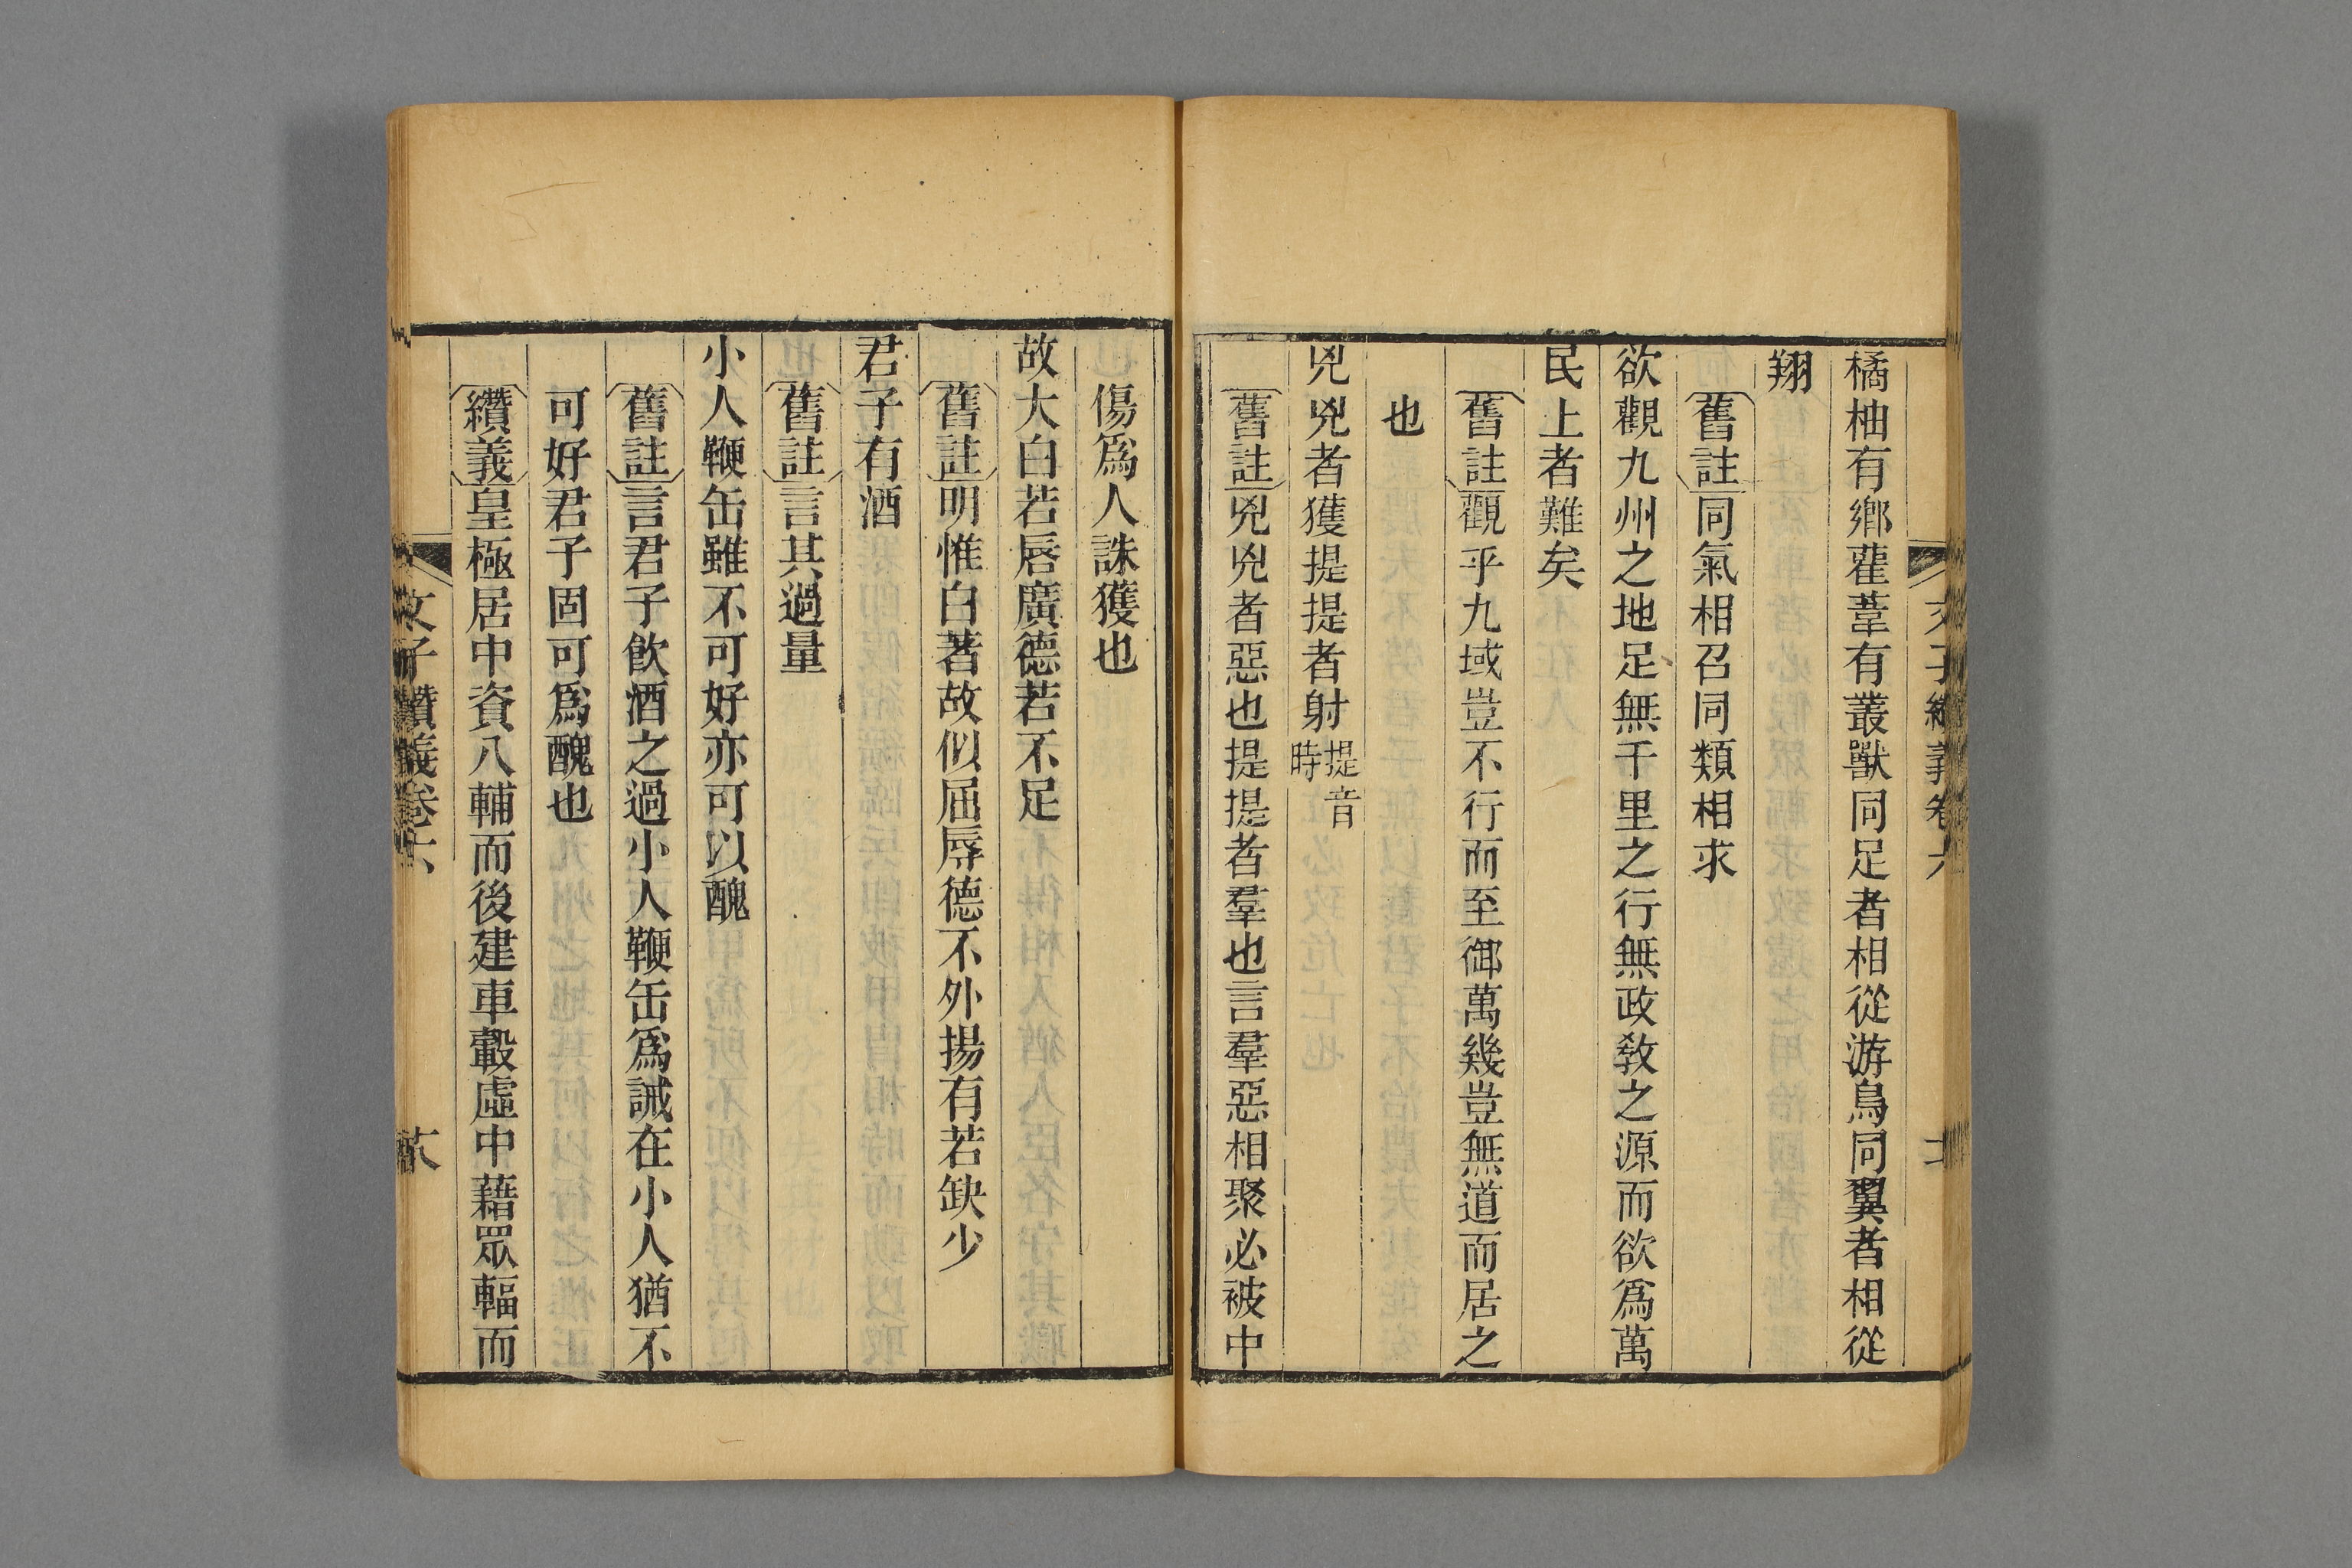 橘柚有鄉雚葦有叢獸同足者相從游鳥同翼者相從
翔
舊註同氣相召同類相求
欲觀九州之地足無千里之行無政敎之源而欲爲萬
民上者難矣
舊註觀乎九域豈不行而至御萬幾豈無道而居之
也
兇兇者獲提提者射提音時
舊註兇兇者惡也提提者羣也言羣惡相聚必被中
傷爲人誅獲也
故大白若辱廣德若不足
舊註明惟白著故似屈辱德不外揚有若缺少
君子有酒
舊註言其過量
小人鞭缶雖不可好亦可以醜
舊註言君子飮酒之過小人鞭缶爲誡在小人猶不
可好君子固可爲醜也
纘義皇極居中資八輔而後建車轂虛中藉眾輻而
文子纘義卷六